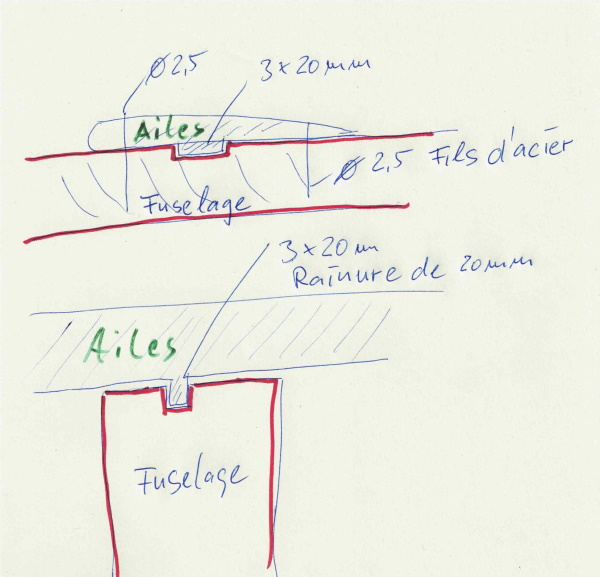 Ø 2,5
3 x 20 mm
Ailes
Ø 2,5 Fils d'acier
Fuselage
3 x 20 m
Rainure de 20 mm
Ailes
Fuselage